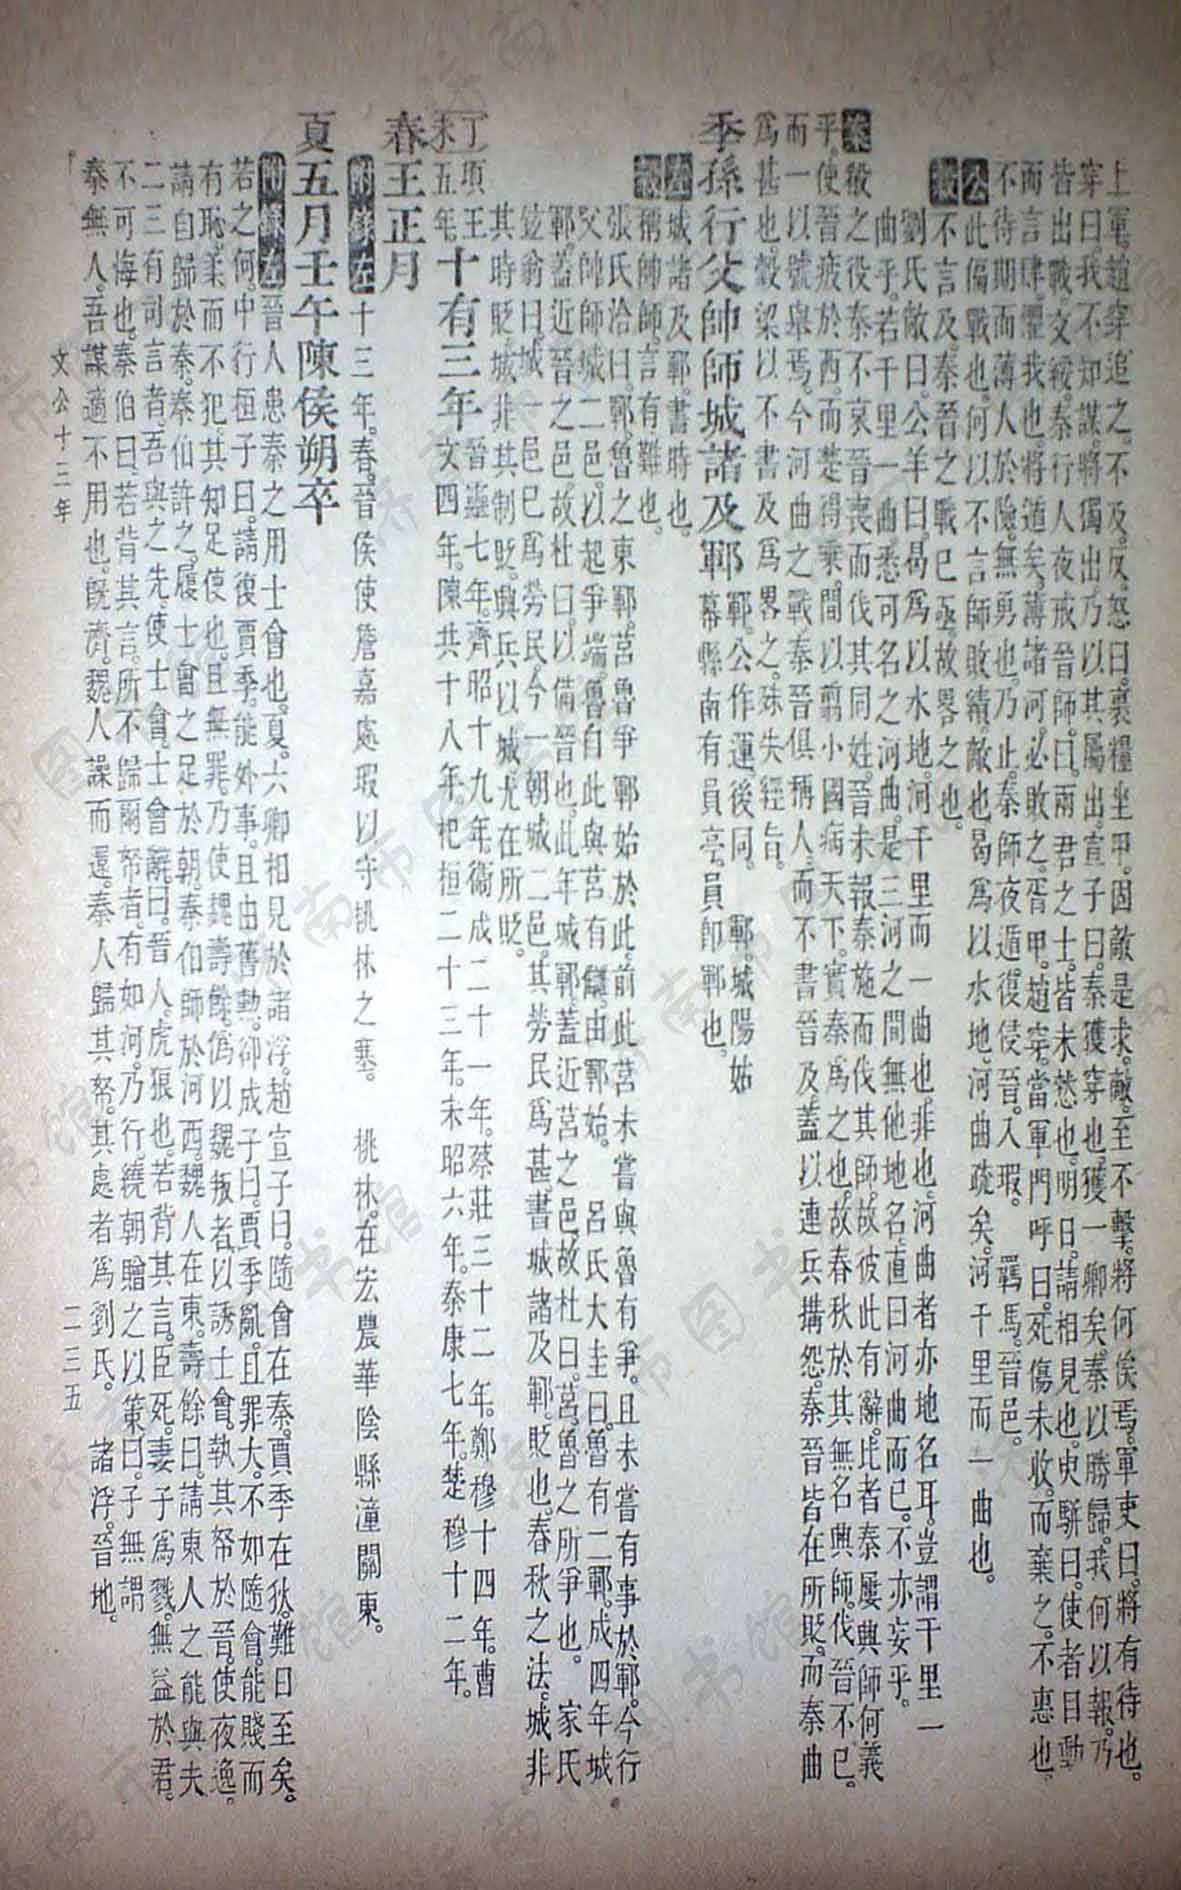 上軍。趙穿追之。不及。反。怒曰。裹糧坐甲。固敵是求。敵至不擊。將何俟焉。軍吏曰。將有待也。
穿曰。我不知謀。將獨出。乃以其屬出。宣子曰。秦獲穿也。獲一卿矣。秦以勝歸。我何以報。乃
皆出戰。交綏。秦行人夜戒晉師。曰。兩君之士。皆未憖也。明日。請相見也。臾騈曰。使者目動
而言肆。懼我也。將遁矣。薄諸河。必敗之。胥甲。趙穿。當軍門呼曰。死傷未收。而棄之。不惠也。
不待期而薄人於險。無勇也。乃止。秦師夜遁。復侵晉。入瑕。 羈馬。晉邑。
公 此偏戰也。何以不言師敗績。敵也。曷爲以水地。河曲疏矣。河千里而一曲也。
穀 不言及。秦晉之戰已亟。故畧之也。
劉氏敞曰。公羊曰。曷爲以水地。河千里而一曲也。非也。河曲者亦地名耳。豈謂千里一
曲乎。若千里一曲。悉可名之河曲。是三河之間無他地名。直曰河曲而已。不亦妄乎。
案 殽之役。秦不哀晉喪而伐其同姓。晉未報秦施而伐其師。故彼此有辭。比者秦屢興師。何義
平。使晉疲於西。而楚得乘間以翦小國。病天下。實秦爲之也。故春秋於其無名興師。伐晉不已。
而一以號舉焉。今河曲之戰。秦晉俱稱人。而不書晉及。蓋以連兵搆怨。秦晉皆在所貶。而秦曲
爲甚也。穀梁以不書及爲畧之。殊失經旨。
季孫行父帥師城諸及鄆 鄆。公作運。後同。 鄆。城陽姑
幕縣南有員亭。員卽鄆也。
左 城諸及鄆。書時也。
穀 稱帥師。言有難也。
張氏洽曰。鄆。魯之東鄆。莒魯爭鄆始於此。前此莒未嘗與魯有爭。且未嘗有事於鄆。今行
父帥師城二邑。以起爭端。魯自此與莒有讎。由鄆始。 呂氏大圭曰。魯有二鄆。成四年城
鄆。蓋近晉之邑。故杜曰。以備晉也。此年城鄆。蓋近莒之邑。故杜曰。莒魯之所爭也。 家氏
鉉翁曰。城一邑已爲勞民。今一朝城二邑。其勞民爲甚。書城諸及鄆。貶也。春秋之法。城非
其時貶。城非其制貶。興兵以城。尤在所貶。
丁未 頃王五年。 十有三年 晉靈七年。齊昭十九年。衞成二十一年。蔡莊三十二年。鄭穆十四年。曹
文四年。陳共十八年。杞桓二十三年。宋昭六年。秦康七年。楚穆十二年。
春王正月
附錄左 十三年。春。晉侯使詹嘉處瑕以守桃林之塞。 桃林。在宏農華陰縣潼關東。
夏五月壬午陳侯朔卒
附錄左 晉人患秦之用士會也。夏。六卿相見於諸浮。趙宣子曰。隨會在秦。賈季在狄。難日至矣。
若之何。中行桓子曰。請復賈季。能外事。且由舊勳。郤成子曰。賈季亂。且罪大。不如隨會。能賤而
有恥。柔而不犯。其知足使也。且無罪。乃使魏壽餘。僞以魏叛者。以誘士會。執其帑於晉。使夜逸。
請自歸於秦。秦伯許之。履士會之足於朝。秦伯師於河西。魏人在東。壽餘曰。請東人之能與夫
二三有司言者。吾與之先。使士會。士會辭曰。晉人。虎狼也。若背其言。臣死。妻子爲戮。無益於君。
不可悔也。秦伯曰。若背其言。所不歸爾帑者。有如河。乃行。繞朝贈之以策。曰。子無謂
秦無人。吾謀適不用也。旣濟。魏人譟而還。秦人歸其帑。其處者爲劉氏。 諸浮。晉地。
文公十三年
二三五